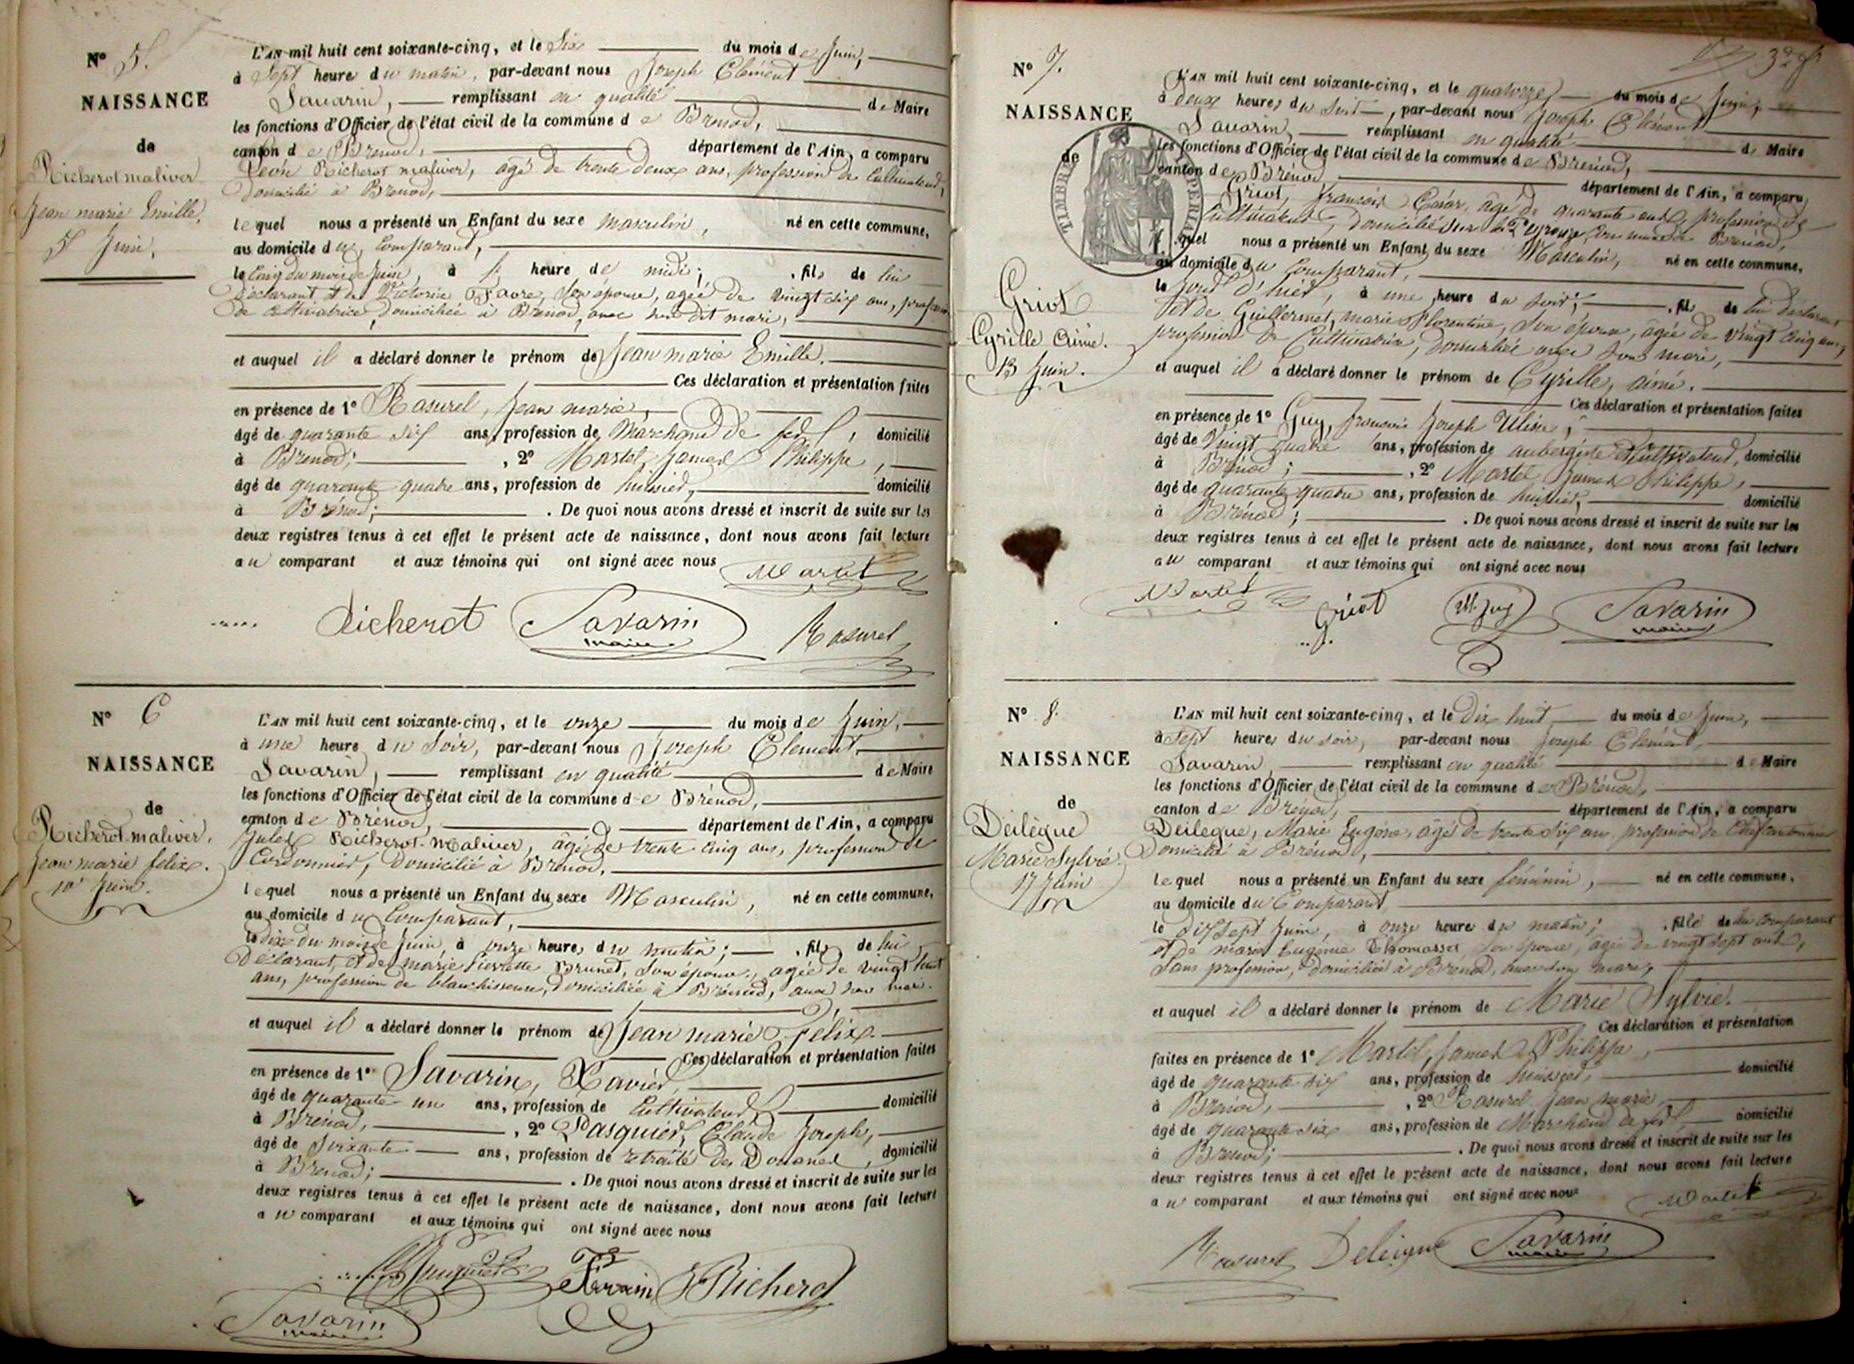 N° 5.
NAISSANCE
de
Richerot maliver
Jean marie Emille.
5 Juin.
L'AN mil huit cent soixante-cinq, et le Six du mois de Juin,
à Sept heure du matin, par-devant nous Joseph Clément
Savarin, remplissant en qualité de Maire
les fonctions d'Officier de l'état civil de la commune de Brenod,
canton de Brenod, département de l'Ain, a comparu
Léon Richerot maliver, agé de trente deux ans, profession de Cultivateur,
domicilié à Brenod,
lequel nous a présenté un Enfant du sexe masculin, né en cette commune,
au domicile du Comparant,
le Cinq du mois de Juin, à heure de midi; fils de lui
déclarant, et de Victorine Favre, son épouse, agée de vingt six ans, profession
de cultivatrice, domiciliée à Brenod, avec son dit mari,
et auquel il a déclaré donner le prénom de Jean marie Emille.
Ces déclaration et présentation faites
en présence de 1° Rasurel, Jean marie,
âgé de quarante six ans, profession de Marchand de fer, domicilié
à Brenod; , 2° Martel, James Philippe,
âgé de quarante quatre ans, profession de huissier, domicilié
à Brénod; . De quoi nous avons dressé et inscrit de suite sur les
deux registres tenus à cet effet le présent acte de naissance, dont nous avons fait lecture
au comparant et aux témoins qui ont signé avec nous
Martel
Richerot Savarin maire Rasurel
N° 6
NAISSANCE
de
Richerot maliver.
Jean marie felix.
10 Juin.
L'AN mil huit cent soixante-cinq, et le onze du mois de Juin,
à une heure du Soir, par-devant nous Joseph Clement
Savarin, remplissant en qualité de Maire
les fonctions d'Officier de l'état civil de la commune de Brénod,
canton de Brénod, département de l'Ain, a comparu
Jules Richerot-Maliver, âgé de trente cinq ans, profession de
Cordonnier, domicilié à Brénod,
lequel nous a présenté un Enfant du sexe Masculin, né en cette commune,
au domicile du Comparant,
le dix du mois de Juin, à onze heures du matin; fils de lui
Déclarant, et de marie Pierrette Brunet, Son épouse, agée de vingt huit
ans, profession de blanchisseuse, domiciliée à Brénod, avec son mari.
et auquel il a déclaré donner le prénom de Jean marie Félix.
Ces déclaration et présentation faites
en présence de 1° Savarin, Xavier,
âgé de quarante un ans, profession de Cultivateur, domicilié
à Brénod, , 2° Pasquier, Claude Joseph,
âgé de Soixante ans, profession de retraité des Douanes, domicilié
à Brenod; . De quoi nous avons dressé et inscrit de suite sur les
deux registres tenus à cet effet le présent acte de naissance, dont nous avons fait lecture
au comparant et aux témoins qui ont signé avec nous
Richerot
Savarin maire
N° 7.
NAISSANCE
de
TIMBRE IMPERIAL
Griot
Cyrille Aimé.
13 Juin.
L'AN mil huit cent soixante-cinq, et le quatorze du mois de Juin,
à deux heures du Soir, par-devant nous Joseph Clément
Savarin, remplissant en qualité de Maire
les fonctions d'Officier de l'état civil de la commune de Brénod,
canton de Brénod département de l'Ain, a comparu
Griot, françois César, agé de quarante ans, profession de
Cultivateur, domicilié commune de Brénod,
lequel nous a présenté un Enfant du sexe Masculin, né en cette commune,
au domicile du Comparant,
le jour d'hier, à une heure du Soir; fils de lui déclarant
et de Guillermet, marie Florentine, Son épouse, âgée de vingt cinq ans,
profession de Cultivatrice, domiciliée avec son mari,
et auquel il a déclaré donner le prénom de Cyrille, aimé.
Ces déclaration et présentation faites
en présence de 1° Guy, françois Joseph Ulisse,
âgé de Vingt quatre ans, profession de aubergiste Cultivateur, domicilié
à Brénod; , 2° Martel James Philippe,
âgé de quarante quatre ans, profession de huissier, domicilié
à Brénod; . De quoi nous avons dressé et inscrit de suite sur les
deux registres tenus à cet effet le présent acte de naissance, dont nous avons fait lecture
au comparant et aux témoins qui ont signé avec nous
Martel Griot Guy Savarin maire
N° 8.
NAISSANCE
de
Deilègue
Marie Sylvie.
17 Juin
L'AN mil huit cent soixante-cinq, et le Dix huit du mois de Juin,
à Sept heures du soir, par-devant nous Joseph Clément,
Savarin remplissant en qualité de Maire
les fonctions d'Officier de l'état civil de la commune de Brénod,
canton de Brénod, département de l'Ain, a comparu
Deilegue, Marie Eugène, âgé de trente Six ans, profession de
Domicilié à Brénod,
lequel nous a présenté un Enfant du sexe féminin, né en cette commune,
au domicile du Comparant
le dix Sept Juin, à onze heure du matin; fille de lui comparant
et de marie Eugénie Thomasset Son épouse, agée de vingt sept ans,
Sans profession, domiciliée à Brénod, avec son mari,
et auquel il a déclaré donner le prénom de Marie Sylvie.
Ces déclaration et présentation
faites en présence de 1° Martel, James Philippe,
âgé de quarante six ans, profession de huissier, domicilié
à Brénod, , 2° Rasurel Jean marie,
âgé de quarante six ans, profession de Marchand de fer, domicilié
à Brenod; . De quoi nous avons dressé et inscrit de suite sur les
deux registres tenus à cet effet le présent acte de naissance, dont nous avons fait lecture
au comparant et aux témoins qui ont signé avec nous
Martel
Rasurel Deleigue Savarin maire